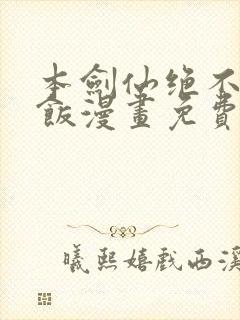 本劍仙绝不
飯漫畫免費
曦熙嬉戲西溪